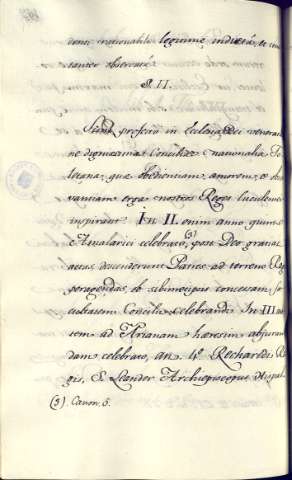 dono nationalite legitime indictá, ac cons
tanter observatá
§. II.
Sunt profecto in Ecclesia Dei veneratio
ne dignissima Concilia nationalia To
letana, quæ obedientiam, amorem, et obser
vantiam erga nostros Reges luculenter
inspirant. In II. enim anno quinto
Amalarici celebrato, (3) post Deo gratias
actas, devenerunt Patres ad terreno Regi
peragendas, ob subimetipsis concessam fa
cultatem Concilii celebrandi. In III au
tem ad Arianam hæresim abjuran
dam celebrato, an. 4º Recharedi Re
gis, S. Leander Archiepiscopus Hispal
(3) Canon. 5.